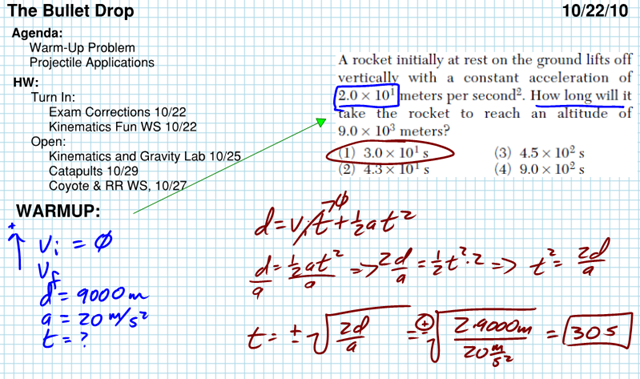 The Bullet Drop
10/22/10
Agenda:
Warm-Up Problem
Projectile Applications
HW:
Turn In:
Exam Corrections 10/22
Kinematics Fun WS 10/22
Open:
Kinematics and Gravity Lab 10/25
Catapults 10/29
Coyote & RR WS, 10/27
A rocket initially at rest on the ground lifts off
vertically with a constant acceleration of
2.0 × 10¹ meters per second². How long will it
take the rocket to reach an altitude of
9.0 × 10³ meters?
(1) 3.0 × 10¹ s
(3) 4.5 × 10² s
(2) 4.3 × 10¹ s
(4) 9.0 × 10² s
WARMUP:
+
Vi = ϕ
Vf
d = 9000 m
a = 20 m/s²
t = ?
d = Vit + ½at²
→ϕ
d/a = ½at²/a => 2d/a = ½t²·2 => t² = 2d/a
t = ±√(2d/a) = ⊕√(2·9000m/20 m/s²) = 30 s